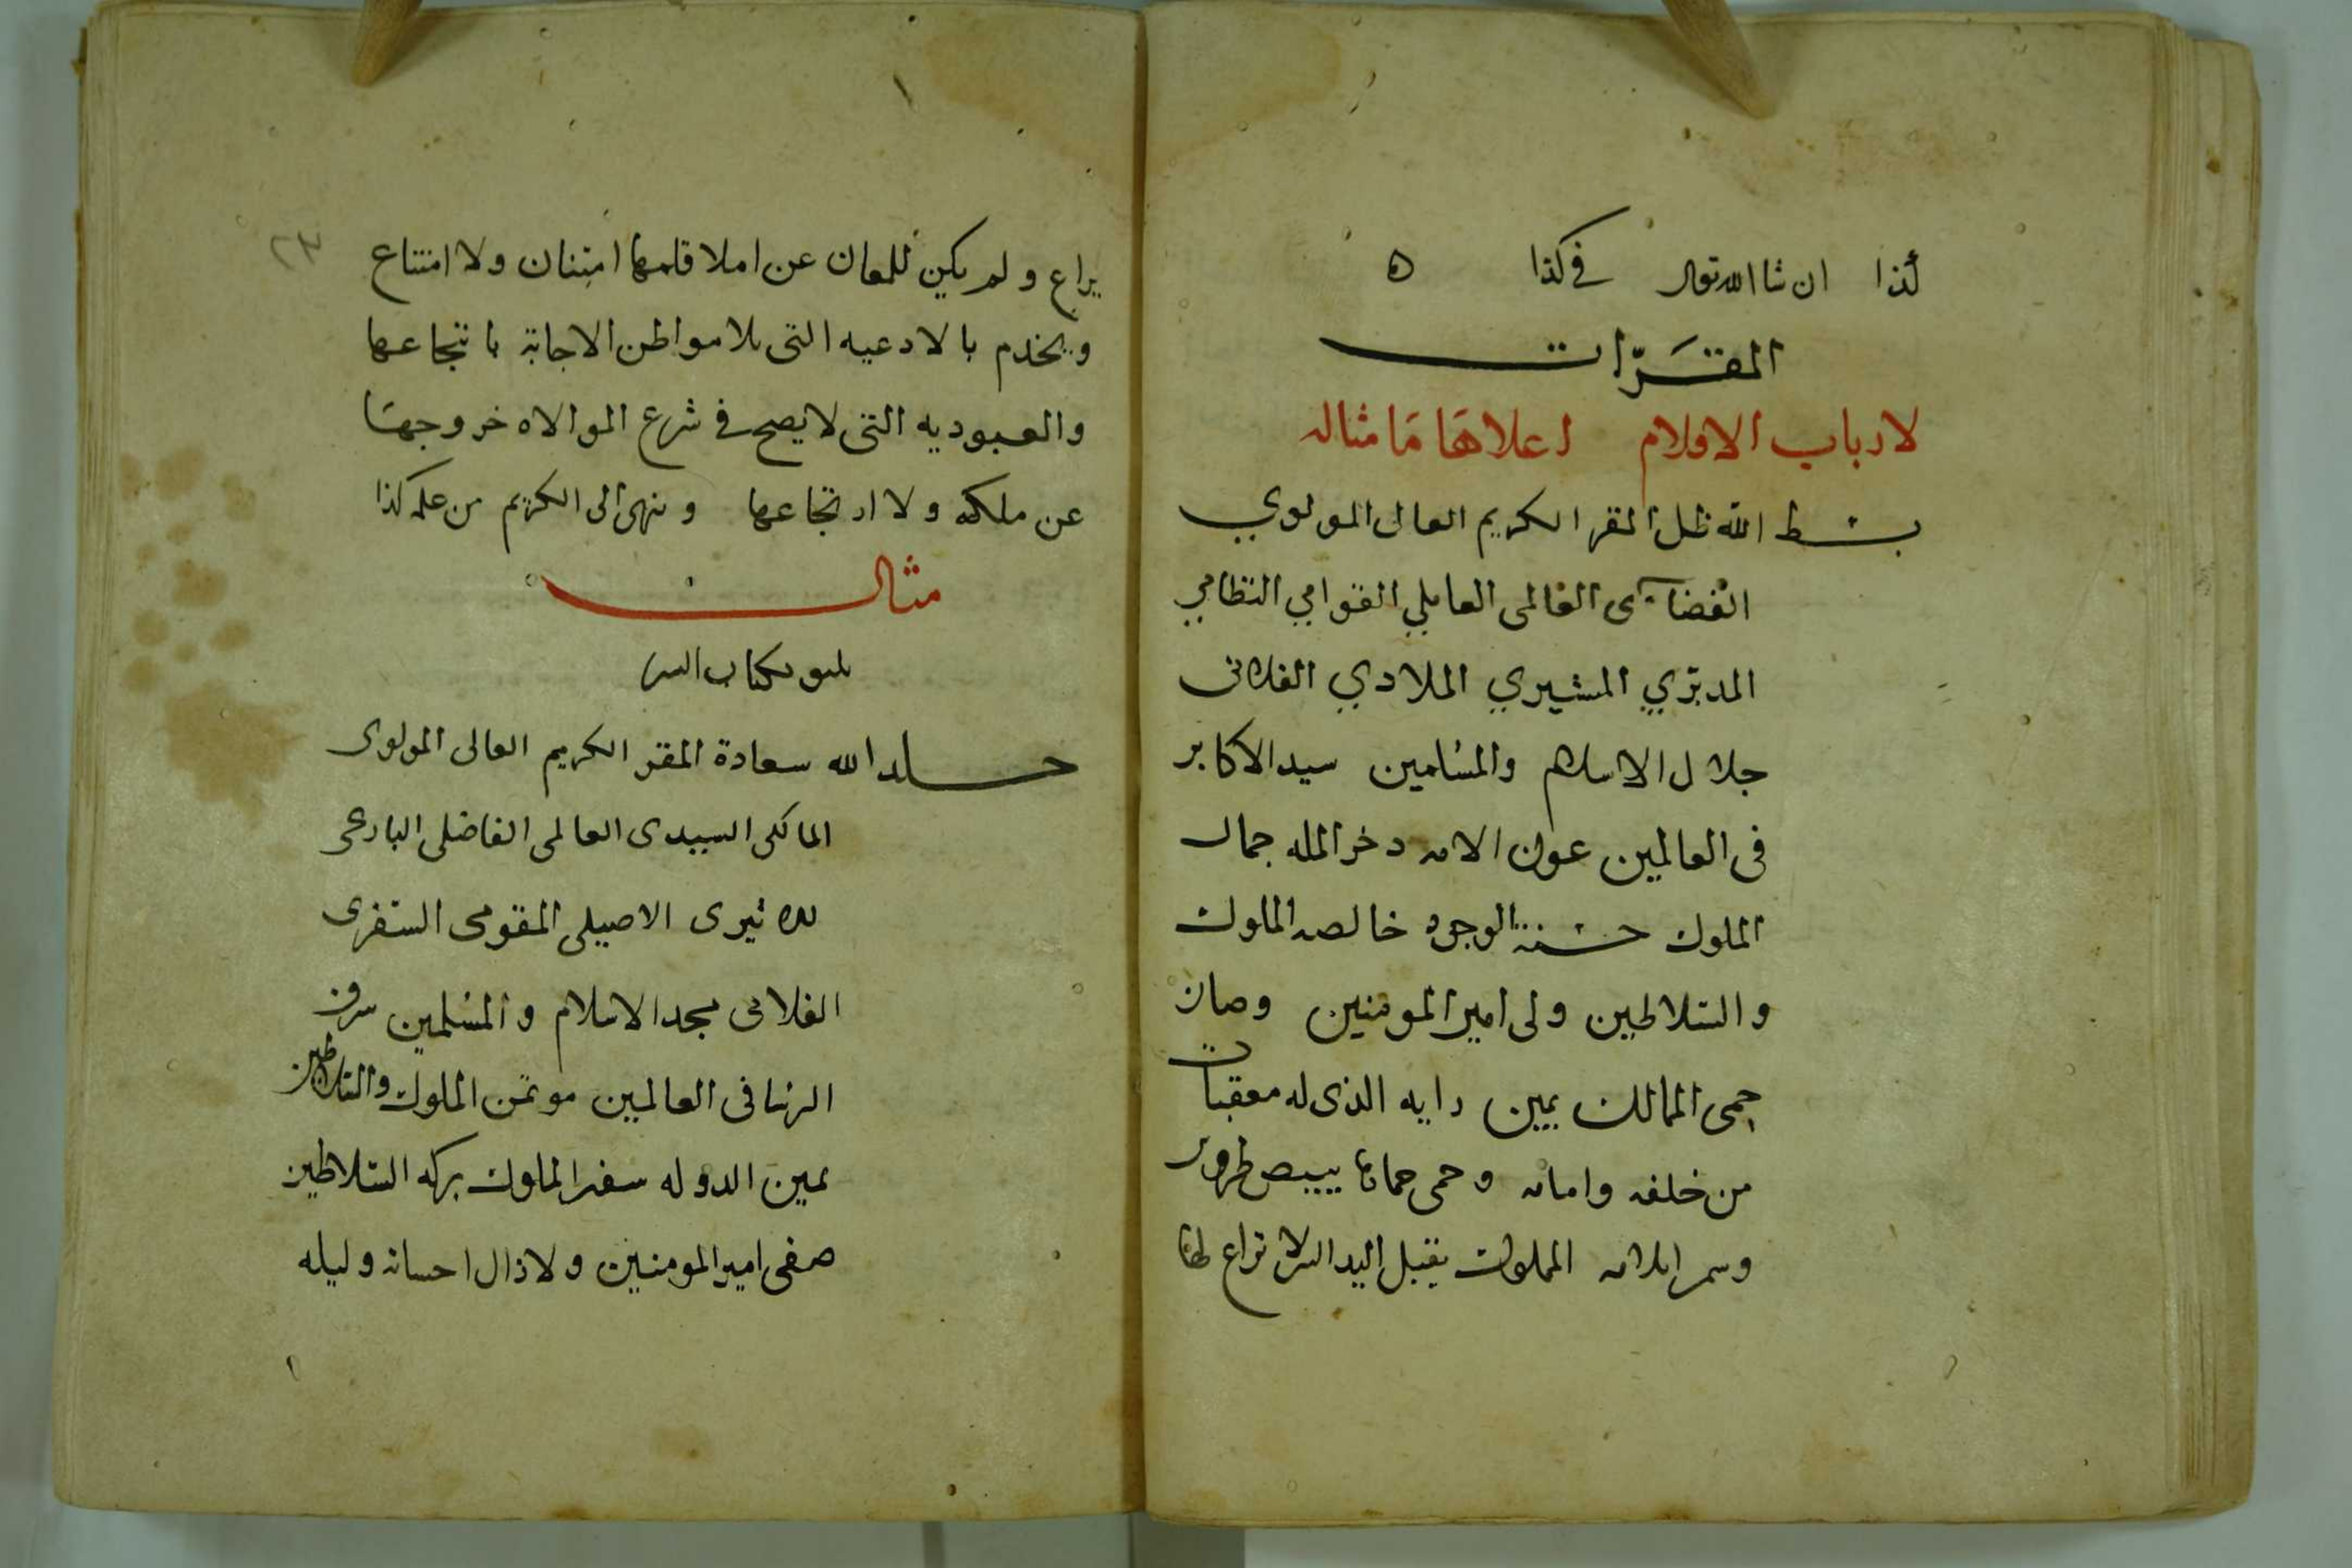 لذا ان شا الله تعالى في كذا ه
المقَرّات
لارباب الاقلام اعلاهَا مَا مثاله
بسط الله ظل المقر الكريم العالى المولوي
القضآىى العالمى العاملي القوامي النظامي
المدبري المشيري الملاذي الفلانى
جلال الاسلام والمسلمين سيد الاكابر
فى العالمين عون الامه دخر المله جمال
الملوك حسنة الوجود خالصه الملوك
والسلاطين ولى امير المومنين وصان
حمى الممالك بيمين رايه الذى له معقبات
من خلفه وامامه وحمى حماها ببيض طروسه
وسمر اقلامه المملوك يقبل اليد التى لا تراع لها
يراع ولم يكن للمعان عن املا قلمها امتنان ولا امتناع
ويخدم بالادعيه التى ملا مواطن الاجابة بانتجاعها
والعبوديه التى لا يصح في شرع الموالاه خروجهَا
عن ملكه ولا ارتجاعها وينهى الى الكريم من علمه كذا
مثال
يليق بكتاب السر
خلد الله سعادة المقر الكريم العالى المولوى
المالكى السيدى العالمى الفاضلى البارعى
الاثيرى الاصيلى المقومى السفرى
الفلانى مجد الاسلام والمسلمين شرف
الرسا فى العالمين موتمن الملوك والسلاطين
يمين الدوله سفير الملوك بركه السلاطين
صفى امير المومنين ولا زال احسانه وليله
٢٣